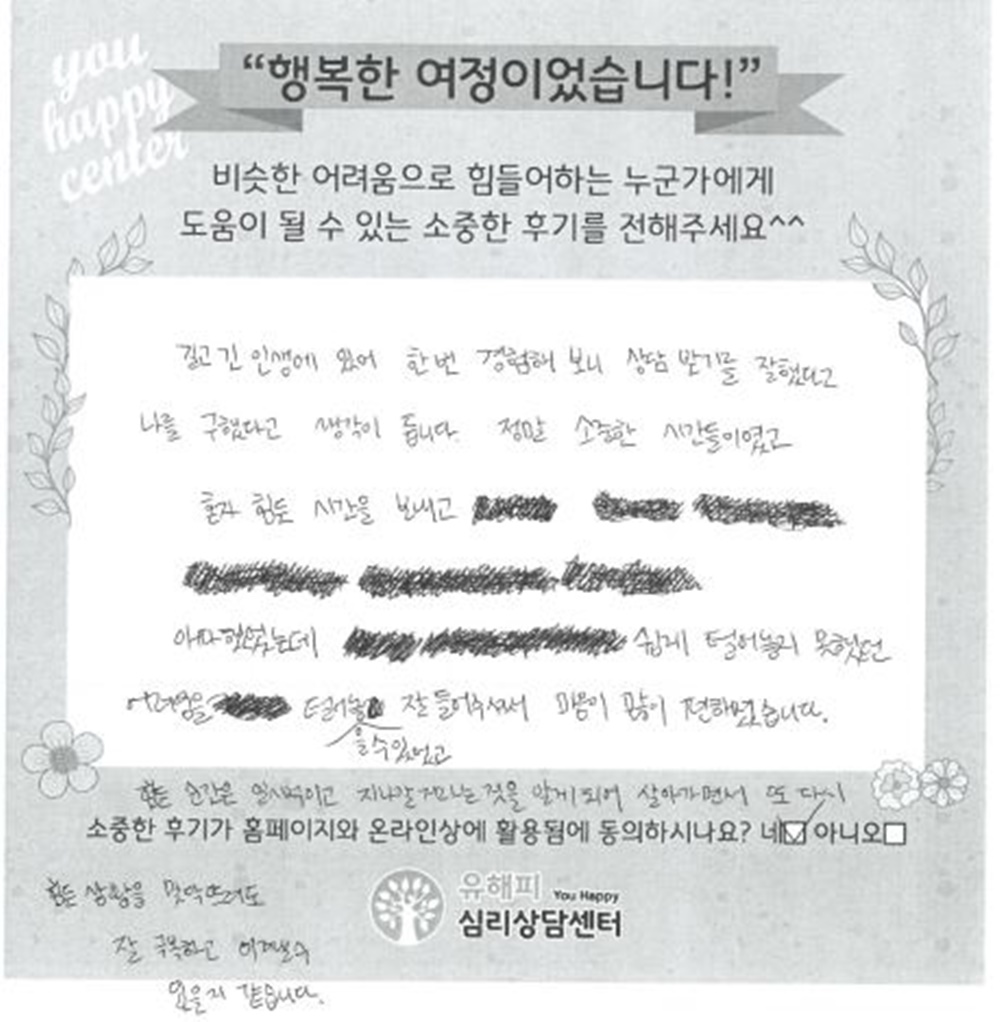 you
happy
center
“행복한 여정이었습니다!”
비슷한 어려움으로 힘들어하는 누군가에게
도움이 될 수 있는 소중한 후기를 전해주세요^^
길고 긴 인생에 있어 한번 경험해 보니 상담 받기를 잘했다고
나를 구했다고 생각이 듭니다. 정말 소중한 시간들이였고
혼자 힘든 시간을 보내고
아파했었는데 쉽게 털어놓지 못했던
어려움을 털어놓을 수 있었고 잘 들어주셔서 마음이 많이 편해졌습니다.
힘든 순간은 일시적이고 지나갈 거라는 것을 알게 되어 살아가면서 또 다시
소중한 후기가 홈페이지와 온라인상에 활용됨에 동의하시나요? 네☑ 아니오□
힘든 상황을 맞닥뜨려도
유해피 You Happy
심리상담센터
잘 극복하고 이겨낼수
있을거 같습니다.